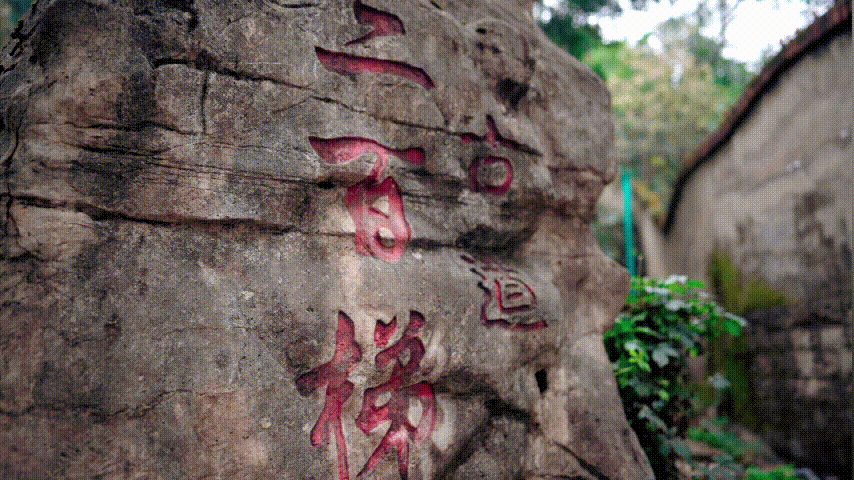 古道
三百梯